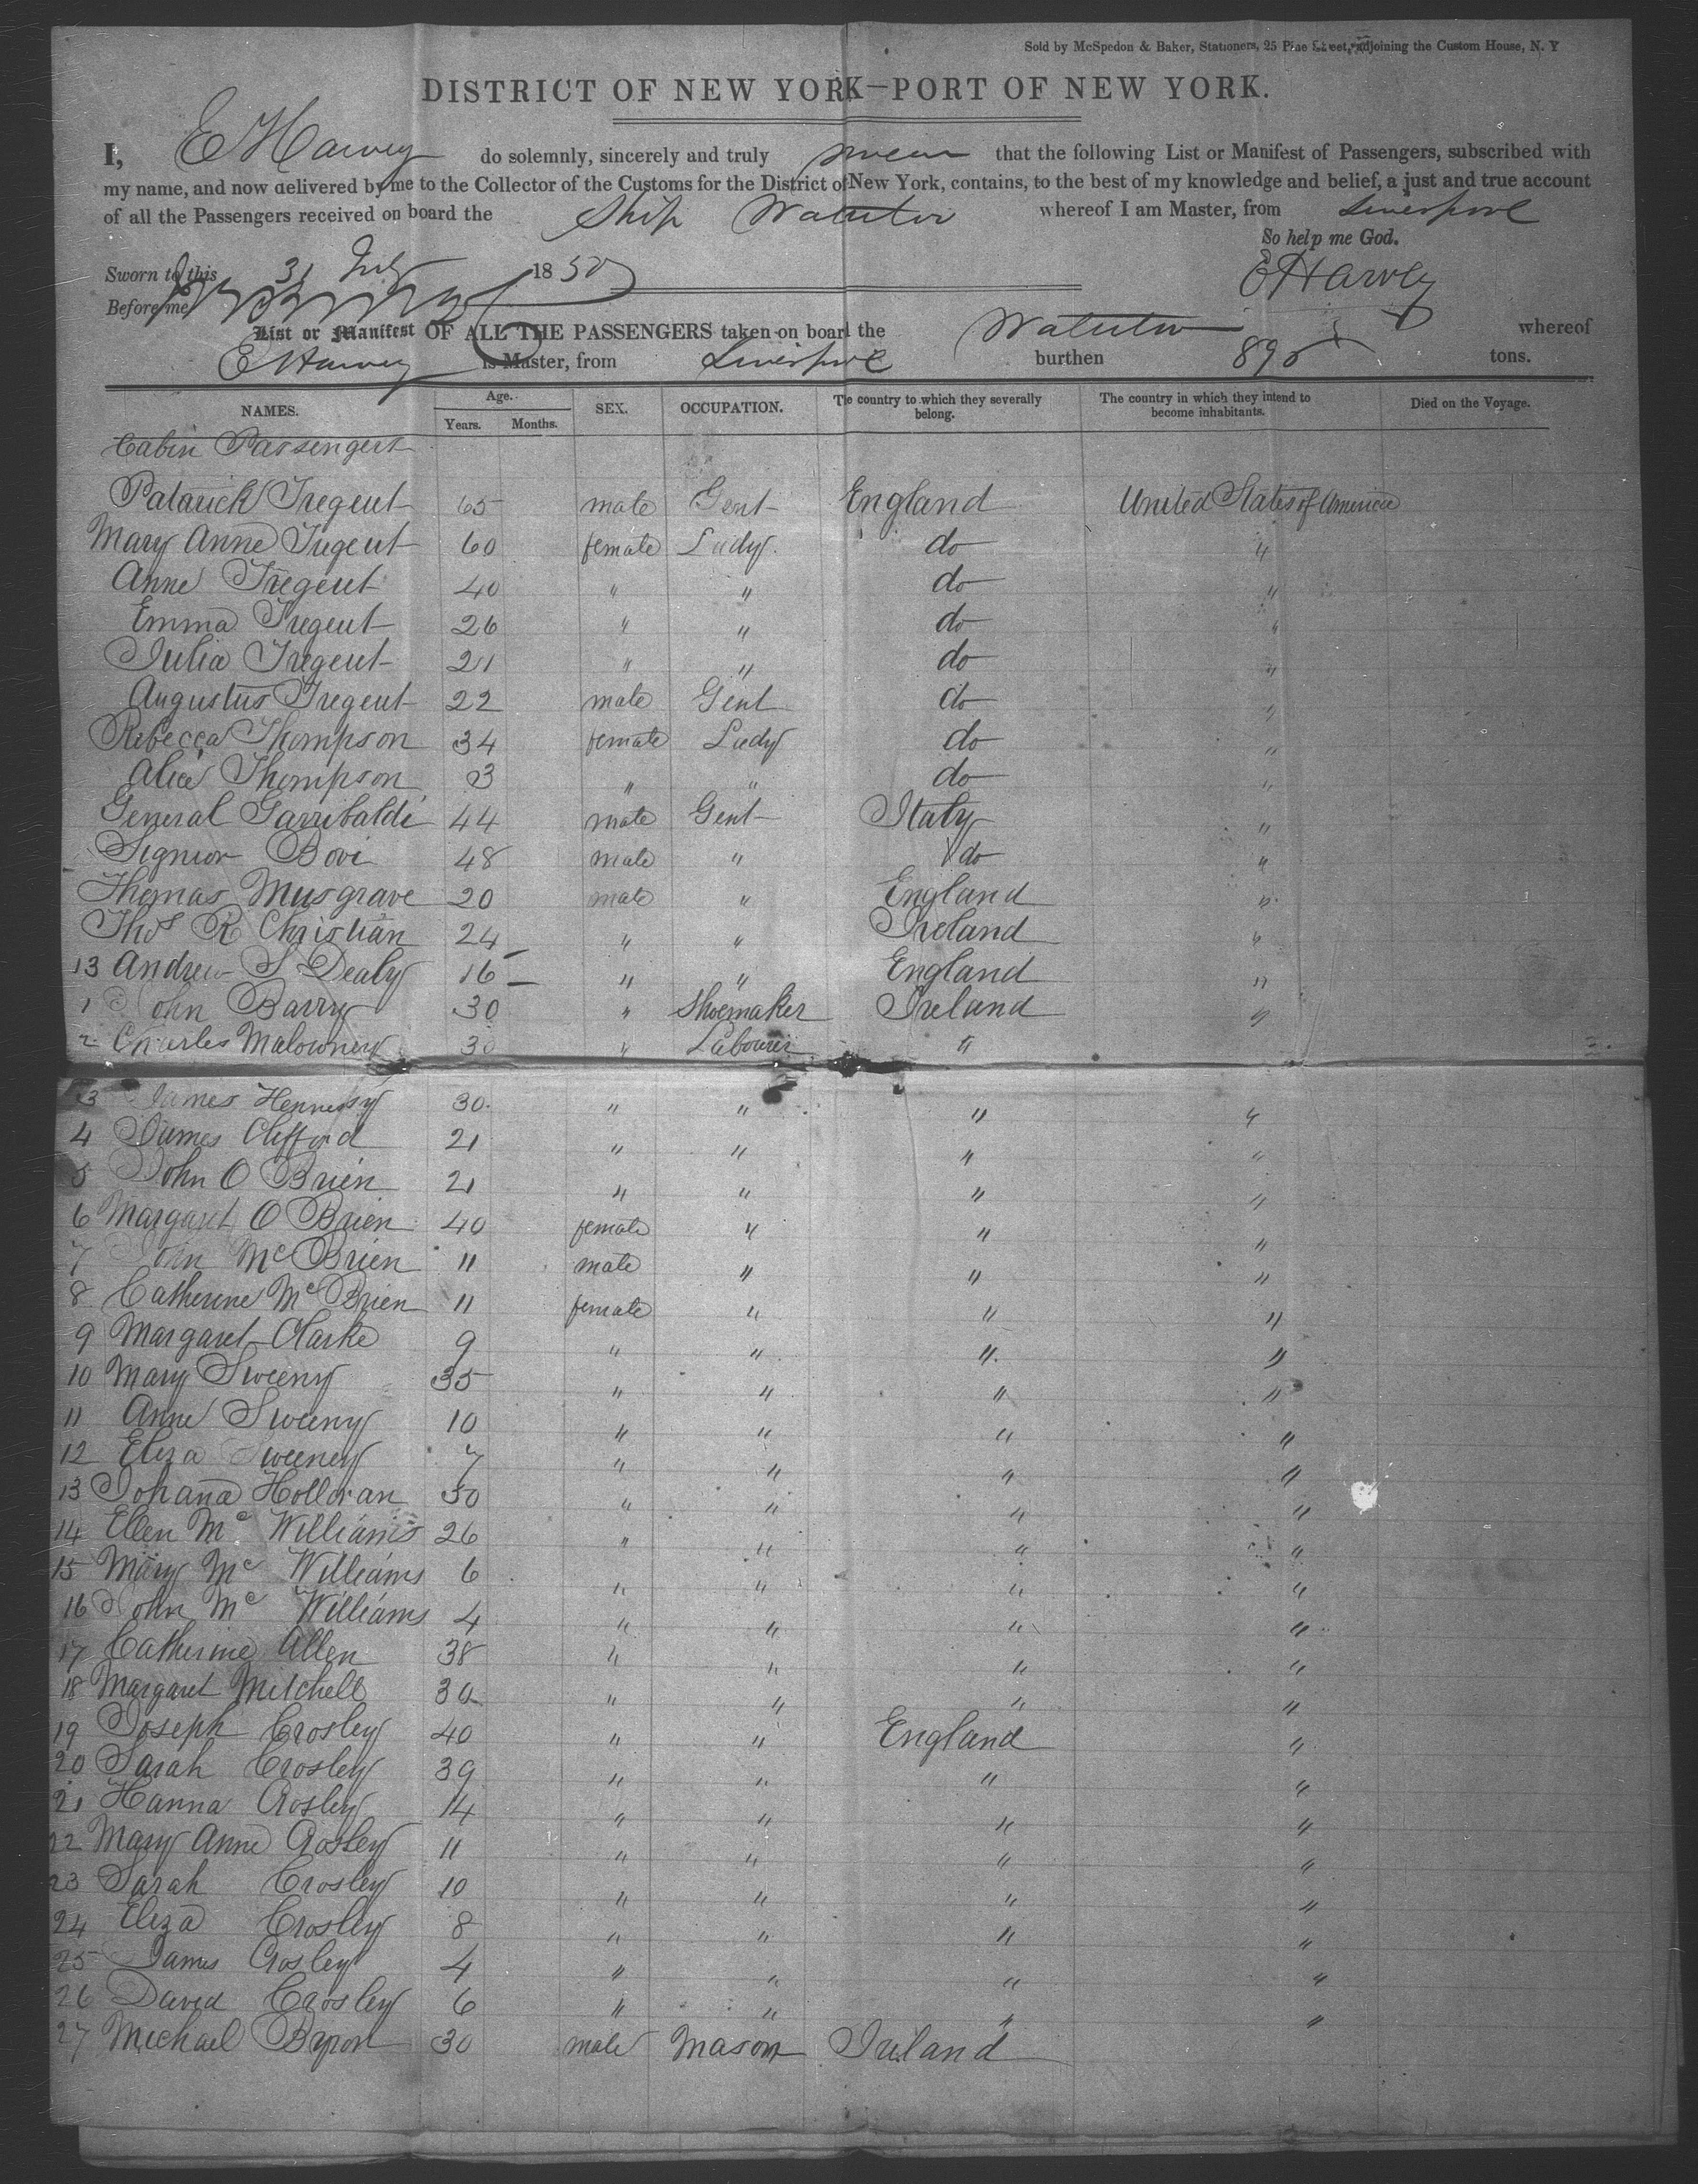 Sold by McSpedon & Baker, Stationers, 25 Pine Street, adjoining the Custom House, N. Y
DISTRICT OF NEW YORK—PORT OF NEW YORK.
I, E Harvey do solemnly, sincerely and truly swear that the following List or Manifest of Passengers, subscribed with
my name, and now delivered by me to the Collector of the Customs for the District of New York, contains, to the best of my knowledge and belief, a just and true account
of all the Passengers received on board the Ship Waterloo whereof I am Master, from Liverpool
So help me God.
Sworn to this 31 July 1850 E Harvey
Before me
List or Manifest OF ALL THE PASSENGERS taken on board the Waterloo whereof
E Harvey is Master, from Liverpool burthen 895 tons.
NAMES. Age. Years. Months. SEX. OCCUPATION. The country to which they severally belong. The country in which they intend to become inhabitants. Died on the Voyage.
Cabin Passengers
Patarick Tregent 65 male Gent England United States of America
Mary Anne Tregent 60 female Lady do "
Anne Tregent 40 " " do "
Emma Tregent 26 " " do "
Julia Tregent 21 " " do "
Augustus Tregent 22 male Gent do "
Rebecca Thompson 34 female Lady do "
Alice Thompson 3 " " do "
General Garribaldi 44 male Gent Italy "
Signior Bovi 48 male " do "
Thomas Musgrave 20 male " England "
Thos R Christian 24 " " Ireland "
13 Andrew S Dealy 16 " " England "
1 John Barry 30 " Shoemaker Ireland "
2 Charles Malowney 30 " Labourer " "
3 James Hennessy 30 " " " "
4 James Clifford 21 " " " "
5 John O Brien 21 " " " "
6 Margaret O Brien 40 female " " "
7 John McBrien 11 male " " "
8 Catherine McBrien 11 female " " "
9 Margaret Clarke 9 " " " "
10 Mary Sweeny 35 " " " "
11 Anne Sweeny 10 " " " "
12 Eliza Sweeney 7 " " " "
13 Johana Holloran 50 " " " "
14 Ellen Mc Williams 26 " " " "
15 Mary Mc Williams 6 " " " "
16 John Mc Williams 4 " " " "
17 Catherine Allen 38 " " " "
18 Margaret Mitchell 30 " " " "
19 Joseph Crosley 40 " " England "
20 Sarah Crosley 39 " " " "
21 Hanna Crosley 14 " " " "
22 Mary Anne Crosley 11 " " " "
23 Sarah Crosley 10 " " " "
24 Eliza Crosley 8 " " " "
25 James Crosley 4 " " " "
26 David Crosley 6 " " " "
27 Michael Byron 30 male Mason Ireland